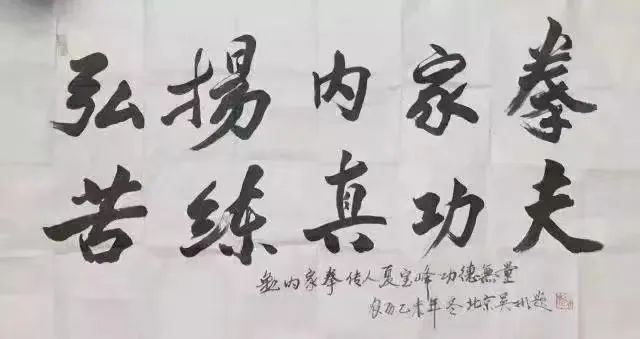 弘揚内家拳
苦練真功夫
内家拳传人夏宝峰功德無量
农历乙未年冬北京吴彬题